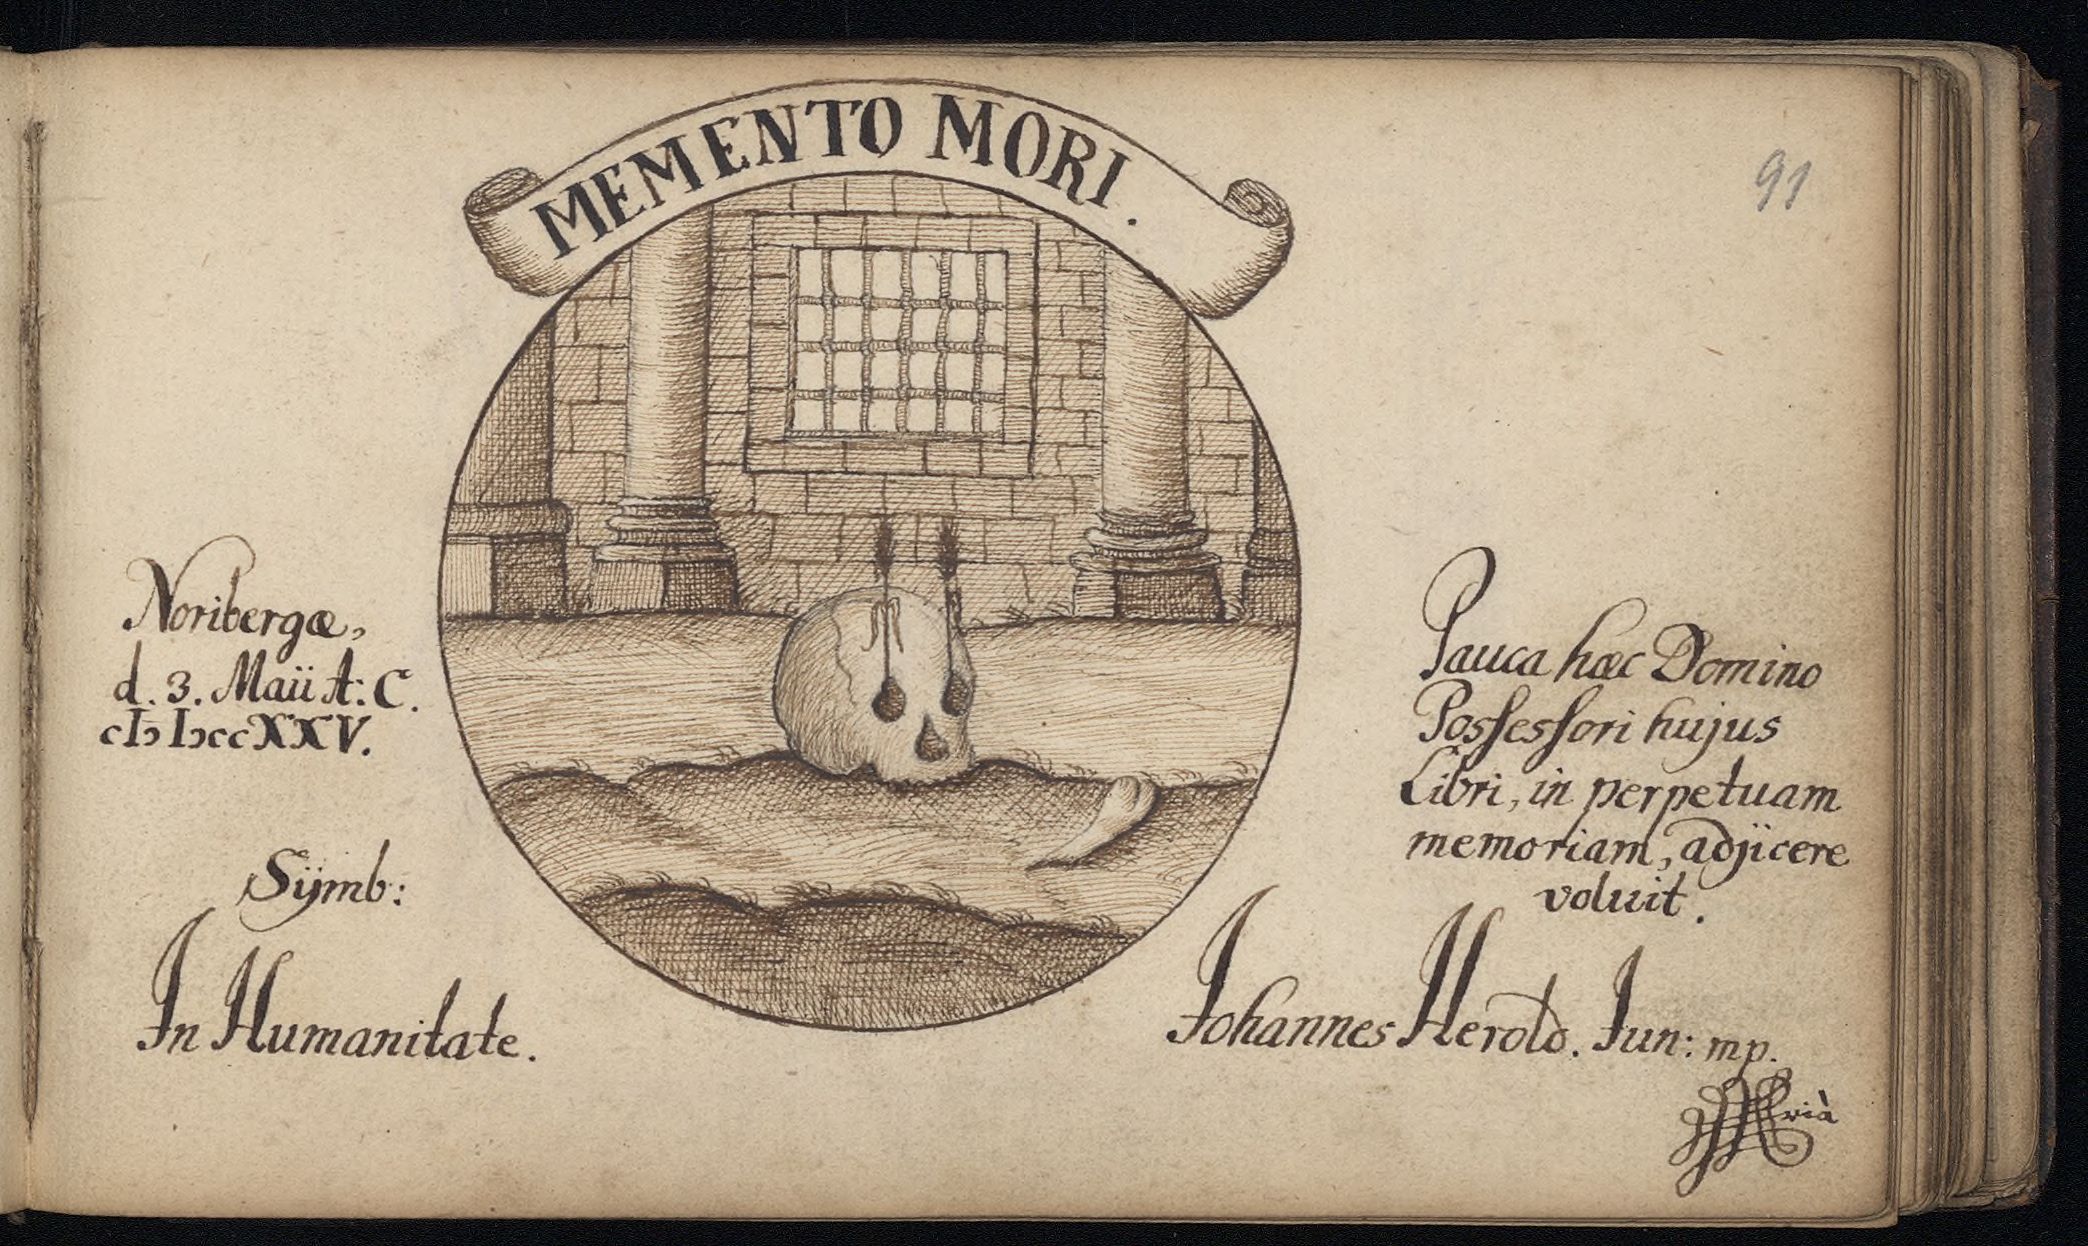 MEMENTO MORI.
91
Noribergæ,
d. 3. Maii A: C.
cIɔ Iɔcc XXV.
Sijmb:
In Humanitate.
Pauca hæc Domino
Possessori hujus
Libri, in perpetuam
memoriam, adjicere
voluit.
Johannes Herold. Jun: mp.